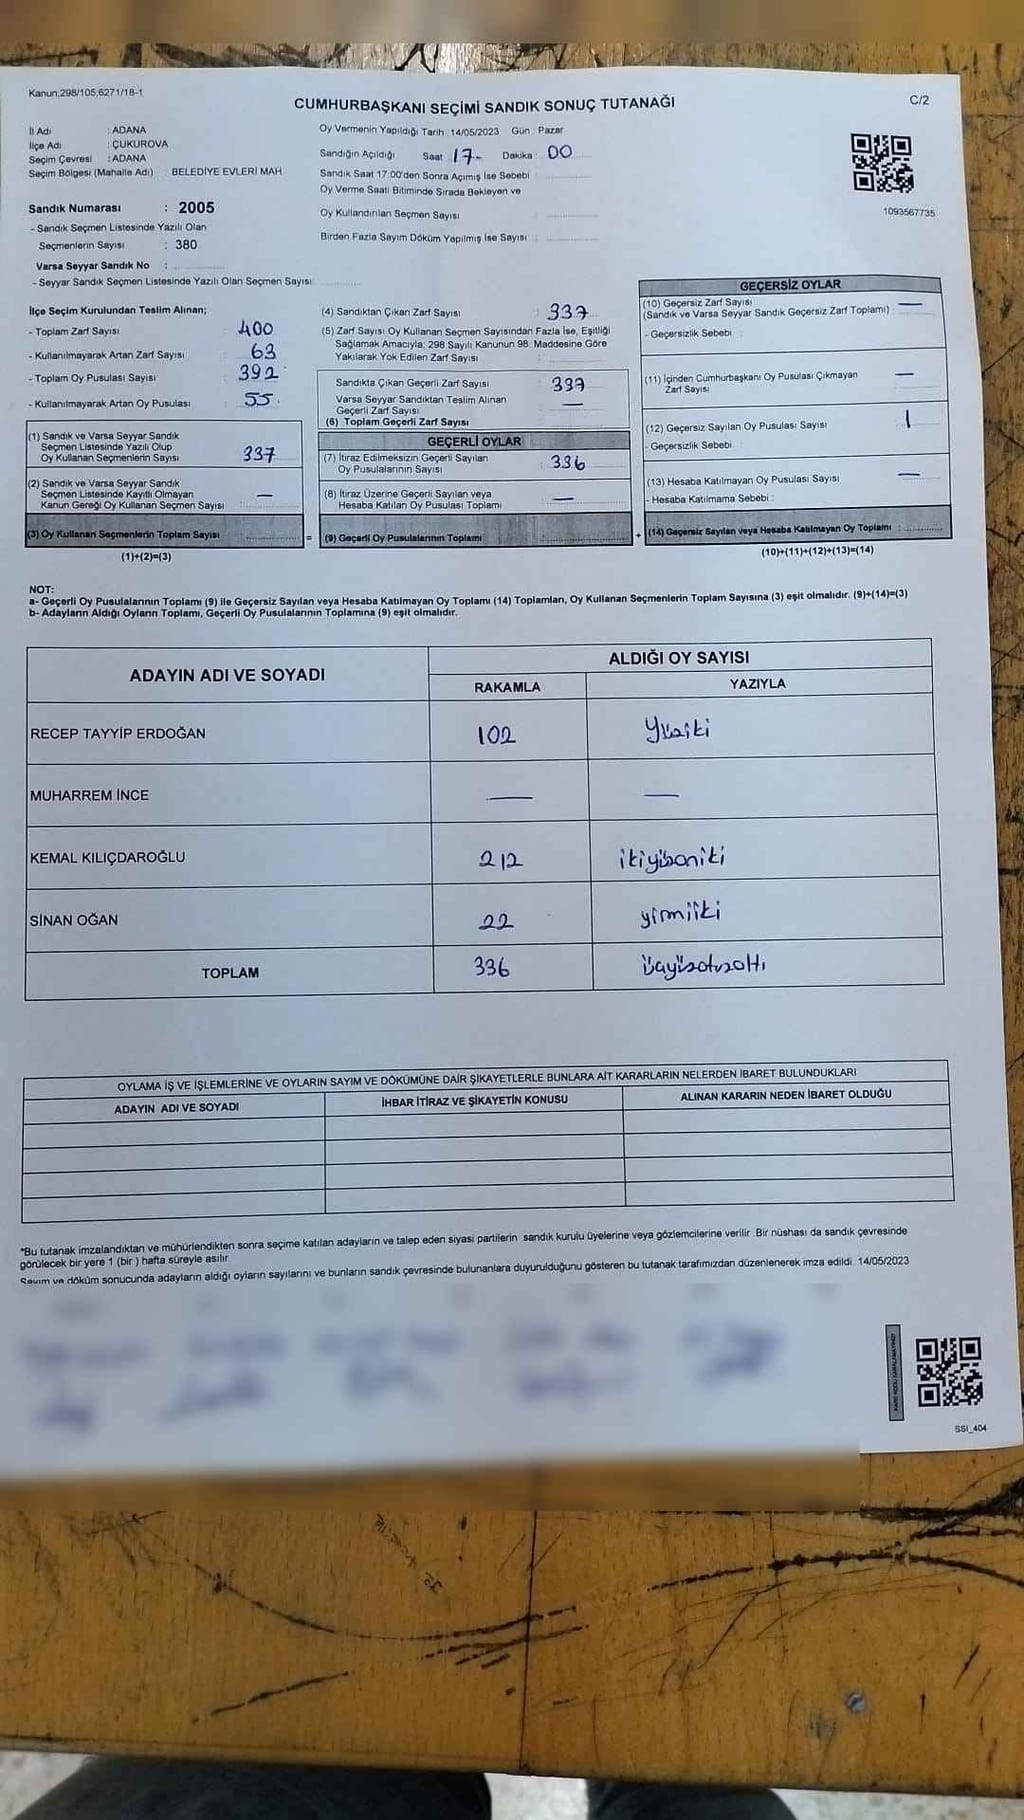 Kanun;298/105;6271/18-1
CUMHURBAŞKANI SEÇİMİ SANDIK SONUÇ TUTANAĞI
C/2
İl Adı : ADANA
İlçe Adı : ÇUKUROVA
Seçim Çevresi : ADANA
Seçim Bölgesi (Mahalle Adı) : BELEDİYE EVLERİ MAH
Sandık Numarası : 2005
- Sandık Seçmen Listesinde Yazılı Olan
Seçmenlerin Sayısı : 380
Varsa Seyyar Sandık No :
- Seyyar Sandık Seçmen Listesinde Yazılı Olan Seçmen Sayısı:
Oy Vermenin Yapıldığı Tarih : 14/05/2023 Gün : Pazar
Sandığın Açıldığı Saat 17- Dakika : 00
Sandık Saat 17:00'den Sonra Açımış İse Sebebi :
Oy Verme Saati Bitiminde Sırada Bekleyen ve
Oy Kullandırılan Seçmen Sayısı :
Birden Fazla Sayım Döküm Yapılmış İse Sayısı :
1093567735
İlçe Seçim Kurulundan Teslim Alınan;
- Toplam Zarf Sayısı : 400
- Kullanılmayarak Artan Zarf Sayısı : 63
- Toplam Oy Pusulası Sayısı : 392
- Kullanılmayarak Artan Oy Pusulası : 55
(1) Sandık ve Varsa Seyyar Sandık
Seçmen Listesinde Yazılı Olup
Oy Kullanan Seçmenlerin Sayısı : 337
(2) Sandık ve Varsa Seyyar Sandık
Seçmen Listesinde Kayıtlı Olmayan
Kanun Gereği Oy Kullanan Seçmen Sayısı : —
(3) Oy Kullanan Seçmenlerin Toplam Sayısı :
(1)+(2)=(3)
(4) Sandıktan Çıkan Zarf Sayısı : 337
(5) Zarf Sayısı Oy Kullanan Seçmen Sayısından Fazla İse, Eşitliği
Sağlamak Amacıyla; 298 Sayılı Kanunun 98. Maddesine Göre
Yakılarak Yok Edilen Zarf Sayısı :
Sandıkta Çıkan Geçerli Zarf Sayısı : 337
Varsa Seyyar Sandıktan Teslim Alınan
Geçerli Zarf Sayısı : —
(6) Toplam Geçerli Zarf Sayısı
GEÇERLİ OYLAR
(7) İtiraz Edilmeksizin Geçerli Sayılan
Oy Pusulalarının Sayısı : 336
(8) İtiraz Üzerine Geçerli Sayılan veya
Hesaba Katılan Oy Pusulası Toplamı : —
= (9) Geçerli Oy Pusulalarının Toplamı :
GEÇERSİZ OYLAR
(10) Geçersiz Zarf Sayısı
(Sandık ve Varsa Seyyar Sandık Geçersiz Zarf Toplamı) : —
- Geçersizlik Sebebi :
(11) İçinden Cumhurbaşkanı Oy Pusulası Çıkmayan
Zarf Sayısı : —
(12) Geçersiz Sayılan Oy Pusulası Sayısı : 1
- Geçersizlik Sebebi :
(13) Hesaba Katılmayan Oy Pusulası Sayısı : —
- Hesaba Katılmama Sebebi :
+ (14) Geçersiz Sayılan veya Hesaba Katılmayan Oy Toplamı :
(10)+(11)+(12)+(13)=(14)
NOT:
a- Geçerli Oy Pusulalarının Toplamı (9) ile Geçersiz Sayılan veya Hesaba Katılmayan Oy Toplamı (14) Toplamları, Oy Kullanan Seçmenlerin Toplam Sayısına (3) eşit olmalıdır. (9)+(14)=(3)
b- Adayların Aldığı Oyların Toplamı, Geçerli Oy Pusulalarının Toplamına (9) eşit olmalıdır.
ADAYIN ADI VE SOYADI
ALDIĞI OY SAYISI
RAKAMLA YAZIYLA
RECEP TAYYİP ERDOĞAN 102 Yüziki
MUHARREM İNCE — —
KEMAL KILIÇDAROĞLU 212 ikiyüzoniki
SİNAN OĞAN 22 yirmiiki
TOPLAM 336 üçyüzotuzaltı
OYLAMA İŞ VE İŞLEMLERİNE VE OYLARIN SAYIM VE DÖKÜMÜNE DAİR ŞİKAYETLERLE BUNLARA AİT KARARLARIN NELERDEN İBARET BULUNDUKLARI
ADAYIN ADI VE SOYADI İHBAR İTİRAZ VE ŞİKAYETİN KONUSU ALINAN KARARIN NEDEN İBARET OLDUĞU
*Bu tutanak imzalandıktan ve mühürlendikten sonra seçime katılan adayların ve talep eden siyasi partilerin sandık kurulu üyelerine veya gözlemcilerine verilir. Bir nüshası da sandık çevresinde
görülecek bir yere 1 (bir) hafta süreyle asılır.
Sayım ve döküm sonucunda adayların aldığı oyların sayılarını ve bunların sandık çevresinde bulunanlara duyurulduğunu gösteren bu tutanak tarafımızdan düzenlenerek imza edildi. 14/05/2023
SSI_404